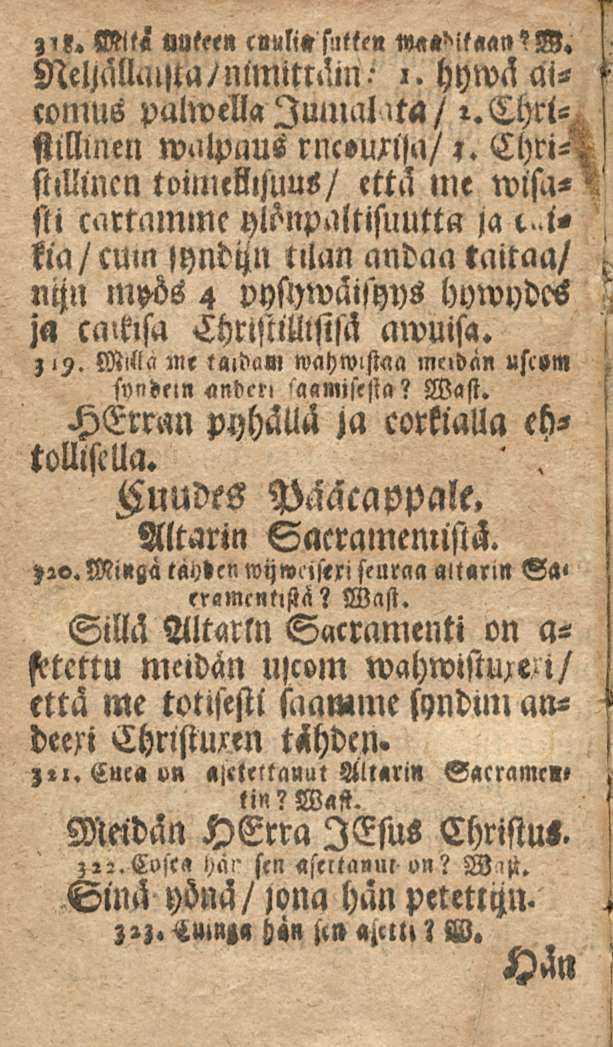 318. Mitä uuteen cuuliaisuteen waaditaan? W.
Neljällaista/nimittäin: 1. hywä ai-
comus palwella Jumalata/ 2. Chri-
stillinen walpaus rucouxisa/ 3. Chri-
stillinen toimellisuus/ että me wisa-
sti cartamme ylönpaltisuutta ja cai-
kia/cuin syndijn tilan andaa taitaa/
nijn myös 4 pysywäisyys hywydes
ja caikisa Christillisisä awuisa.
319. Millä me taidam wahwistaa meidän uscom
syndein anderi saamisesta? Wast.
HErran pyhällä ja corkialla eh-
tollisella.
Cuudes Pääcappale.
Altarin Sacramentistä.
320. Mingä tähden wijweiseri seuraa altarin Sa-
cramentistä? Wast.
Sillä Altarin Sacramenti on a-
setettu meidän uscom wahwistuxexi/
että me totisesti saamme syndim an-
deexi Christuxen tähden.
321. Cuca on asetettanut Altarin Sacramen-
tin? Wast.
Meidän HErra JEsus Christus.
322. Cosca hän sen asettanut on? Wast.
Sinä yönä/ jona hän petettijn.
323. Cuinga hän sen asetti? W.
Hän